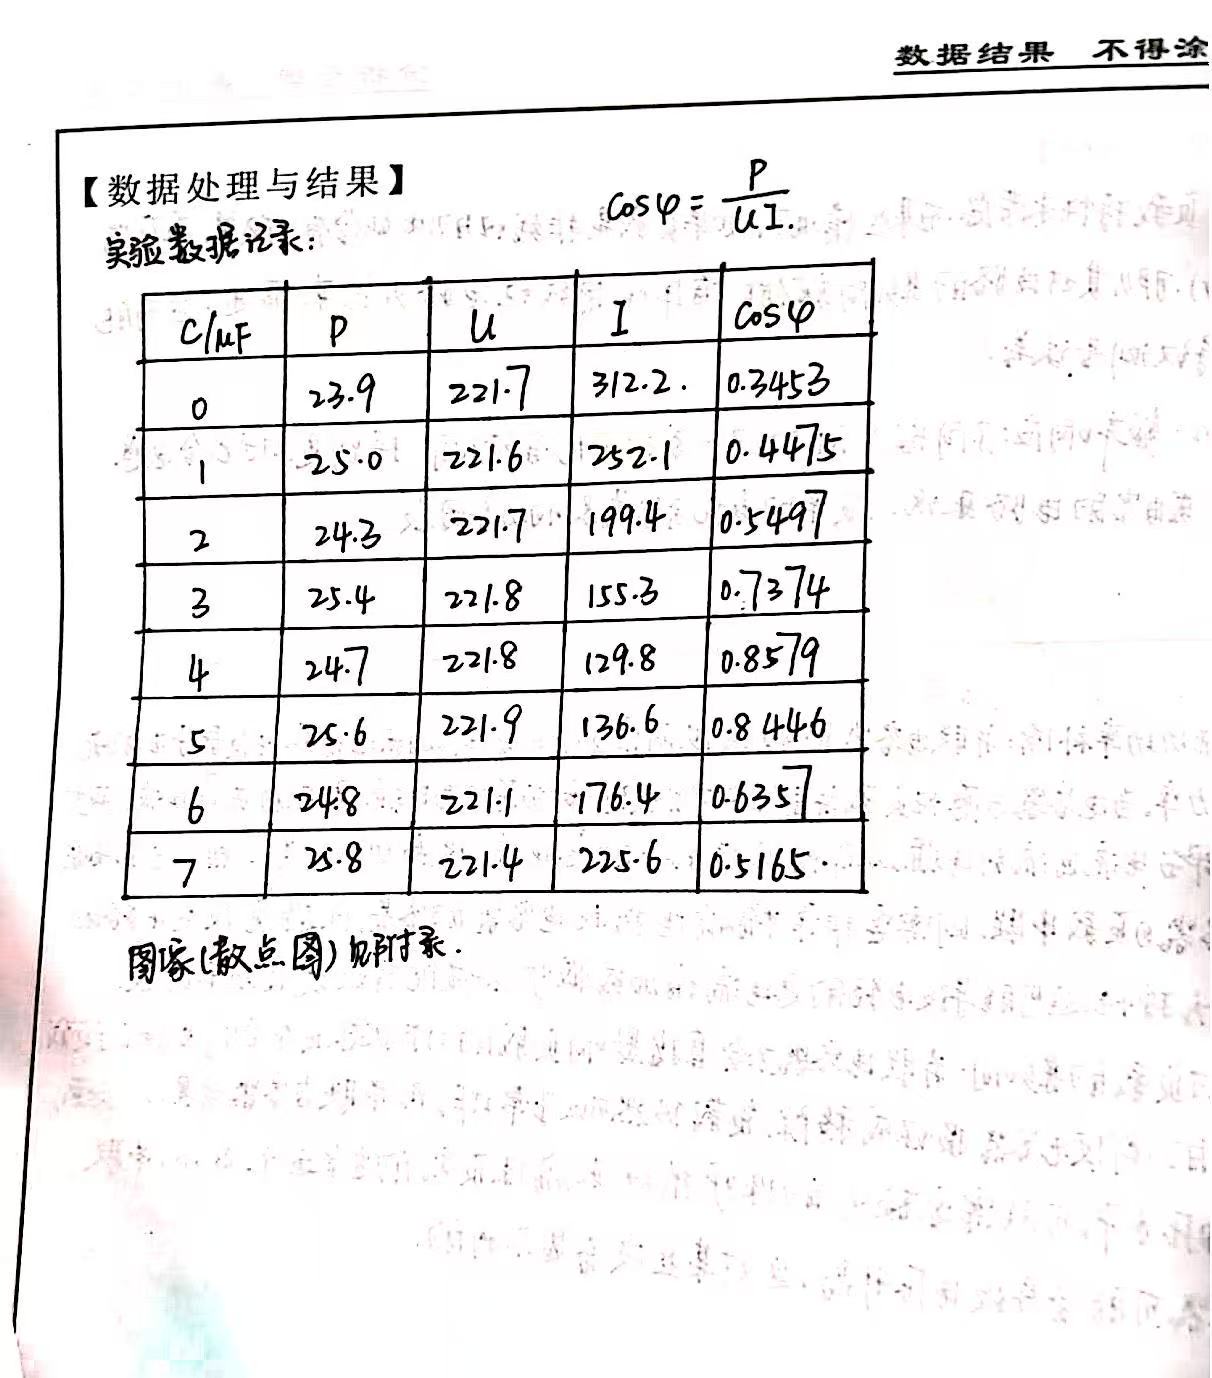 数据结果 不得涂
【数据处理与结果】
cosφ = P/UI.
实验数据记录：
C/μF P U I cosφ
0 23.9 221.7 312.2. 0.3453
1 25.0 221.6 252.1 0.4475
2 24.3 221.7 199.4 0.5497
3 25.4 221.8 155.3 0.7374
4 24.7 221.8 129.8 0.8579
5 25.6 221.9 136.6 0.8446
6 24.8 221.1 176.4 0.6357
7 25.8 221.4 225.6 0.5165.
图像(散点图)见附录.